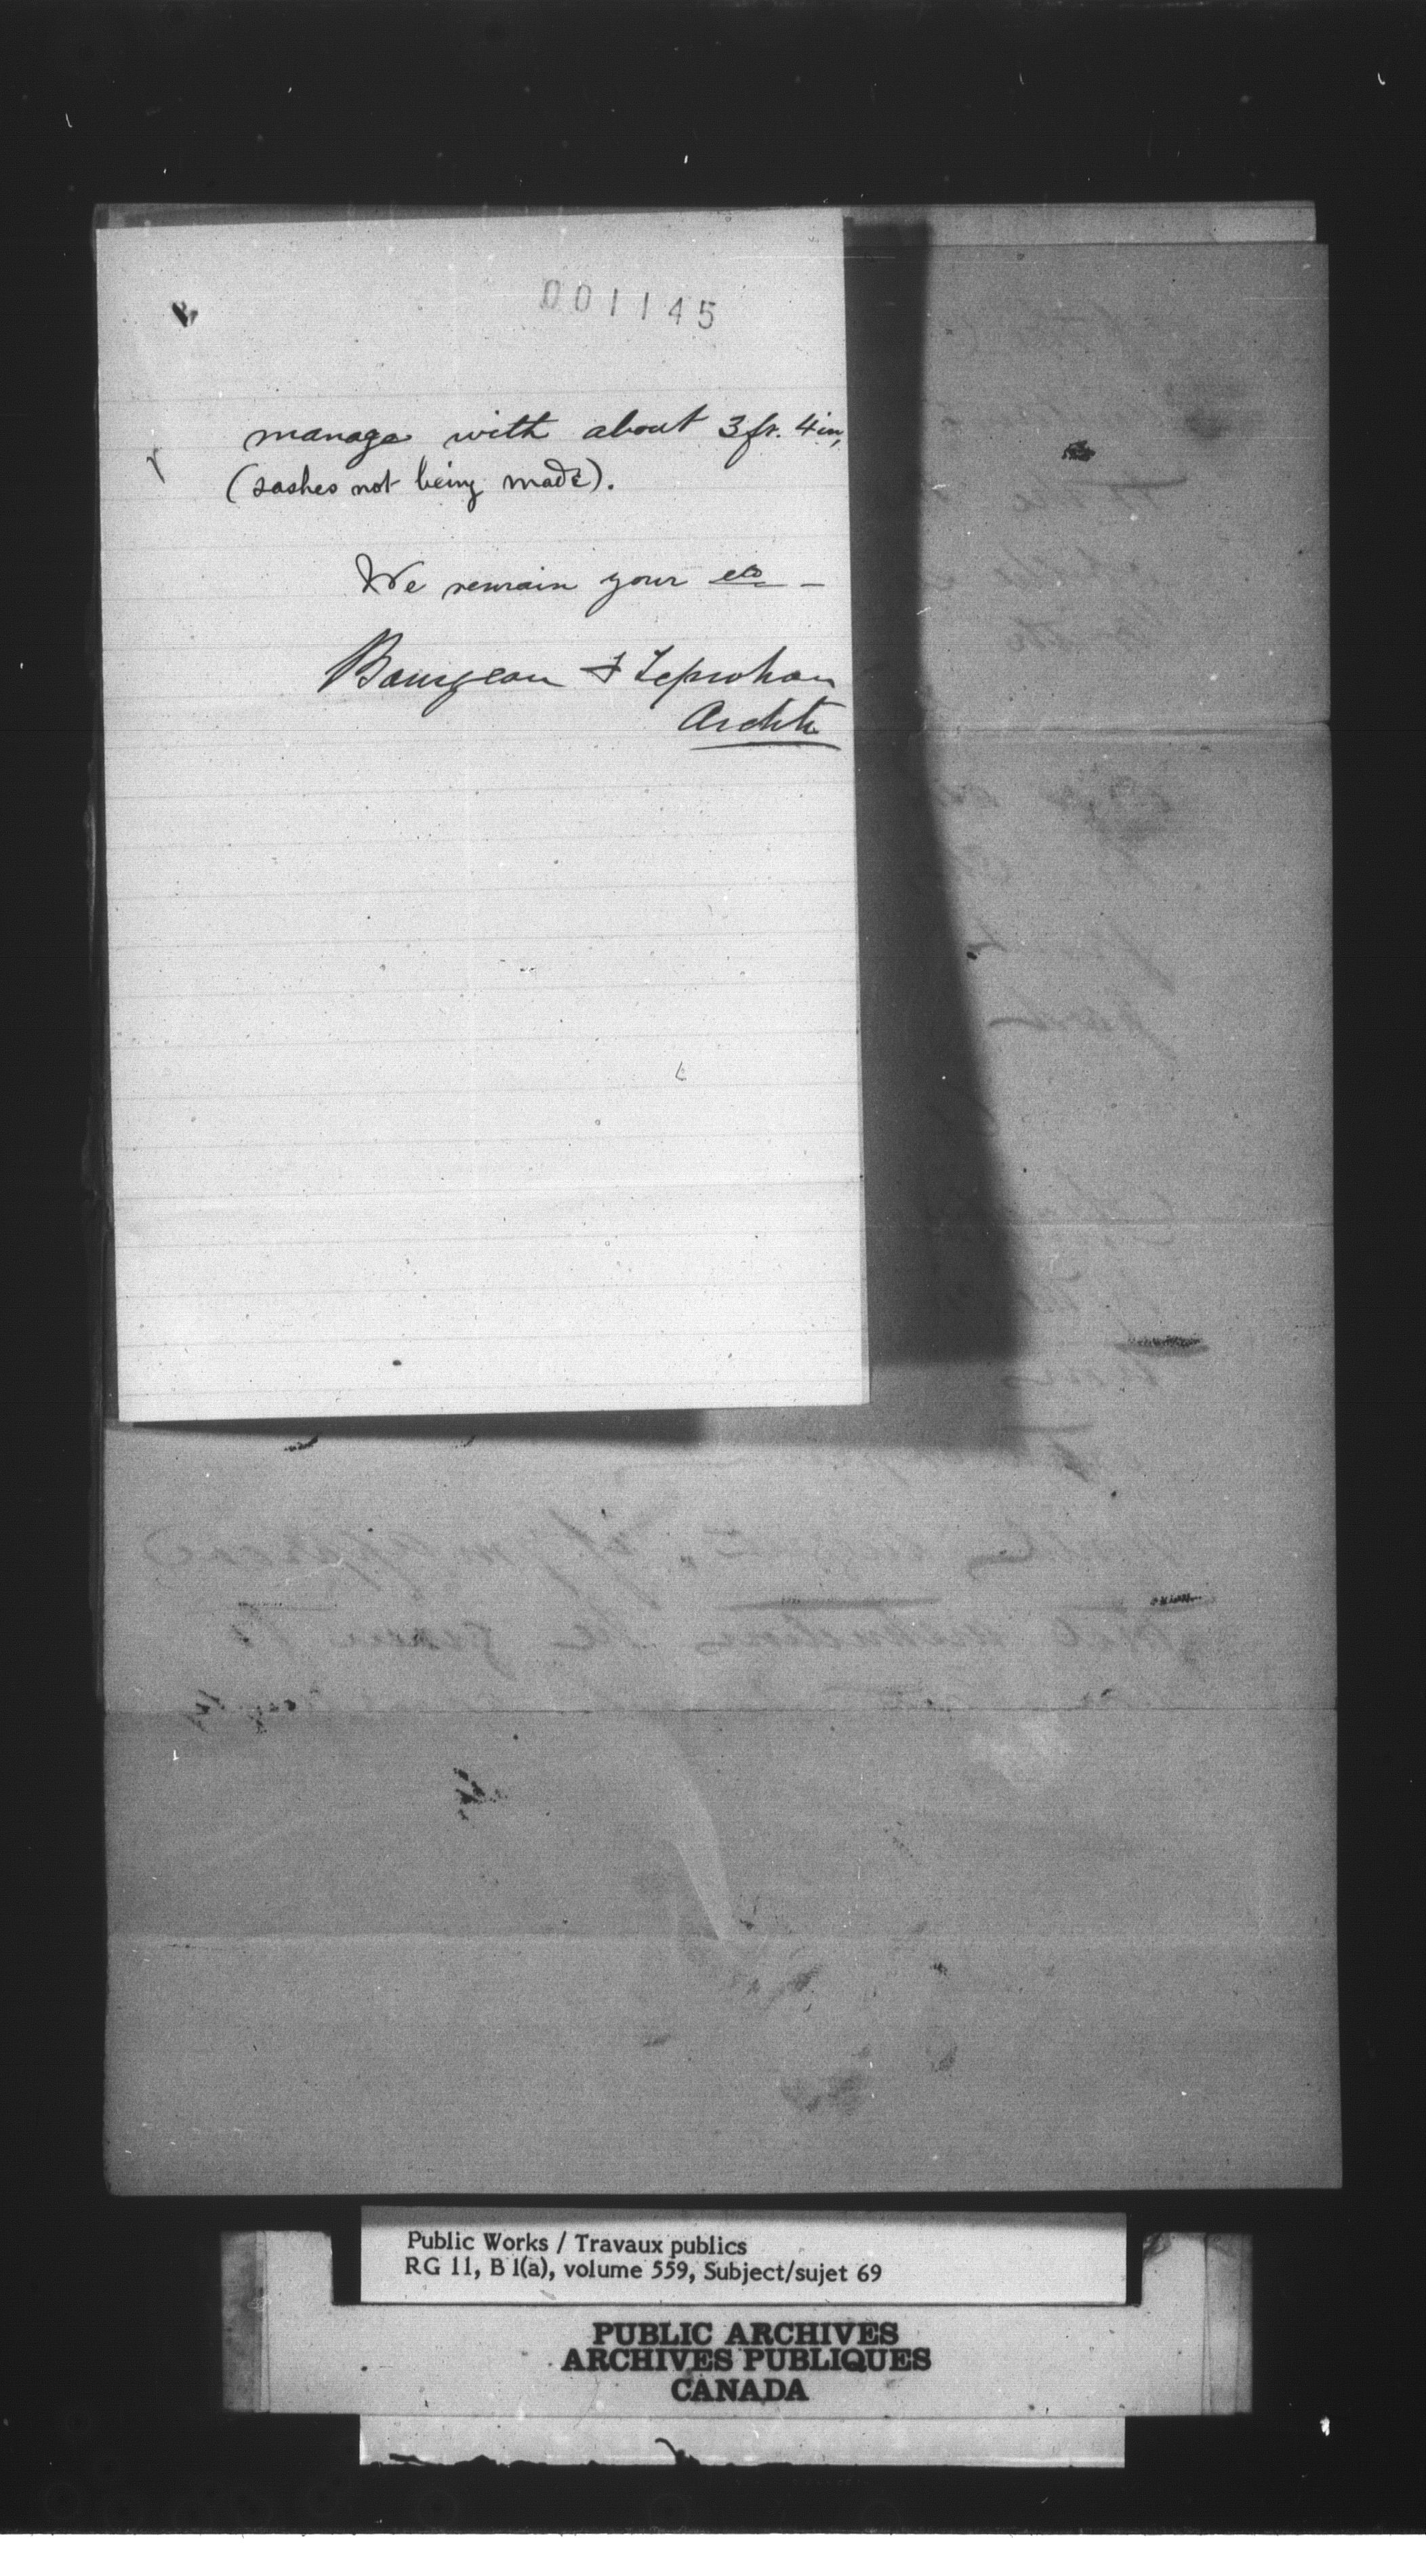 001145
manage with about 3 ft. 4 in,
(sashes not being made).
We remain your etc –
Bourgeau & Leprohon
Archts
Public Works / Travaux publics
RG 11, B 1(a), volume 559, Subject/sujet 69
PUBLIC ARCHIVES
ARCHIVES PUBLIQUES
CANADA